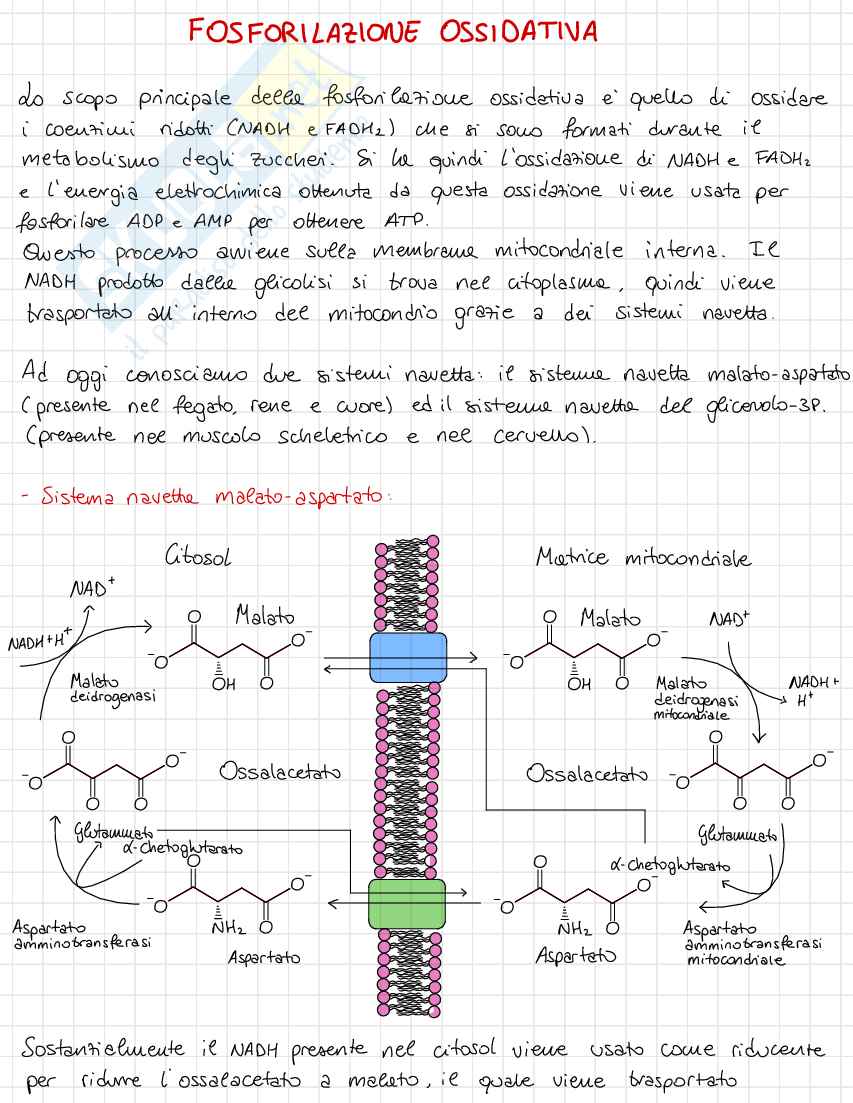 FOSFORILAZIONE OSSIDATIVA
Lo scopo principale della fosforilazione ossidativa è quello di ossidare
i coenzimi ridotti (NADH e FADH₂) che si sono formati durante il
metabolismo degli zuccheri. Si ha quindi l'ossidazione di NADH e FADH₂
e l'energia elettrochimica ottenuta da questa ossidazione viene usata per
fosforilare ADP e AMP per ottenere ATP.
Questo processo avviene sulla membrana mitocondriale interna. Il
NADH prodotto dalla glicolisi si trova nel citoplasma, quindi viene
trasportato all'interno del mitocondrio grazie a dei sistemi navetta.
Ad oggi conosciamo due sistemi navetta: il sistema navetta malato-aspartato
(presente nel fegato, rene e cuore) ed il sistema navetta del glicerolo-3P.
(presente nel muscolo scheletrico e nel cervello).
- Sistema navetta malato-aspartato:
Citosol
Matrice mitocondriale
NAD⁺
NADH+H⁺
Malato
Malato
deidrogenasi
O⁻
O
⁻O
OH
O
Malato
NAD⁺
O⁻
O
⁻O
OH
O
Malato
deidrogenasi
mitocondriale
NADH+
H⁺
Ossalacetato
O⁻
O
⁻O
O
O
Ossalacetato
O⁻
O
⁻O
O
O
Glutammato
α-chetoglutarato
Glutammato
α-chetoglutarato
Aspartato
amminotransferasi
O⁻
O
⁻O
NH₂
O
Aspartato
O⁻
O
⁻O
NH₂
O
Aspartato
Aspartato
amminotransferasi
mitocondriale
Sostanzialmente il NADH presente nel citosol viene usato come riducente
per ridurre l'ossalacetato a malato, il quale viene trasportato